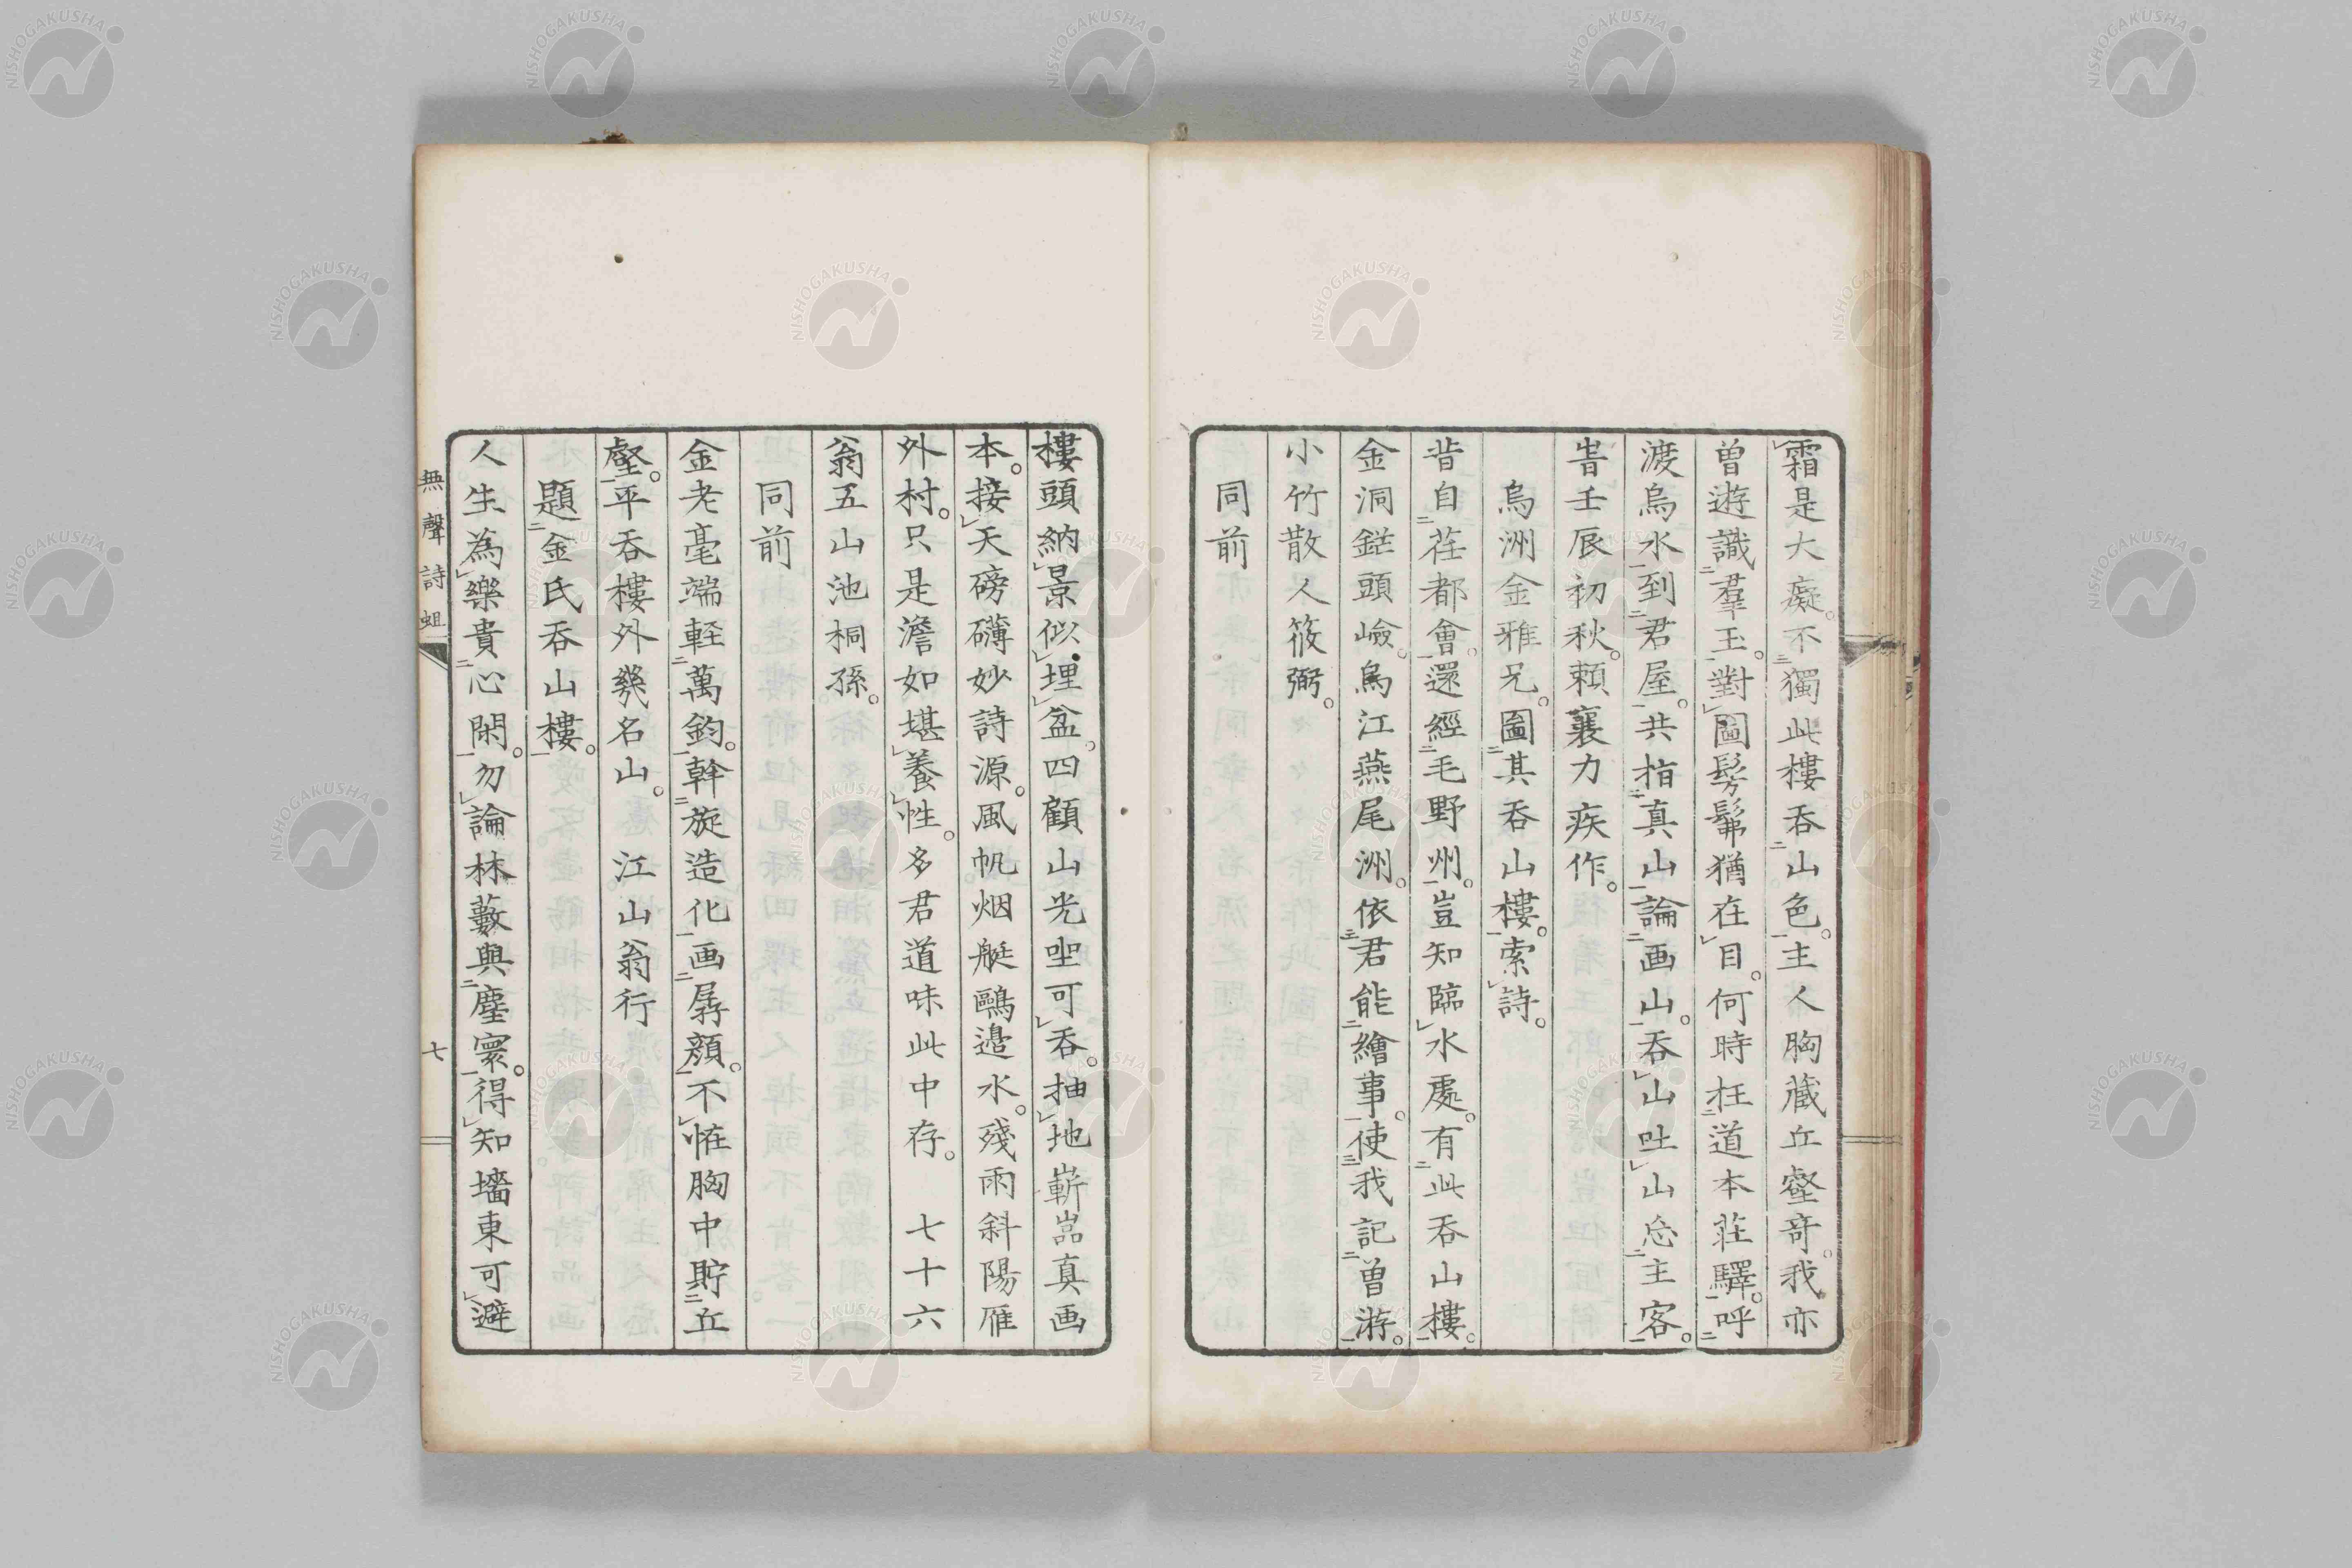 霜是大癡。不獨此樓吞山色。主人胸藏丘壑奇。我亦
曽遊識羣玉。對圖髣髴猶在目。何時枉道本莊驛。呼
渡烏水到君屋。共指真山論画山。吞山吐山忘主客。
旹壬辰初秋。頼襄力疾作。
烏洲金雅兄。圖其吞山樓。索詩。
昔自荏都會。還經毛野州。豈知臨水處。有此吞山樓。
金洞鎹頭嶮。烏江燕尾洲。依君能繪事。使我記曽游。
小竹散人筱弼。
同前
樓頭納景似埋盆。四顧山光坐可吞。抽地嶄嵓真画
本。接天磅礴妙詩源。風帆烟艇鷗邉水。殘雨斜陽雁
外村。只是澹如堪養性。多君道味此中存。 七十六
翁五山池桐孫。
同前
金老毫端軽萬鈞。幹旋造化画孱顔。不恠胸中貯丘
壑。平吞樓外幾名山。 江山翁行
題金氏吞山樓。
人生為樂貴心閑。勿論林藪與塵寰。得知墻東可避
無聲詩蛆
七
NISHOGAKUSHA